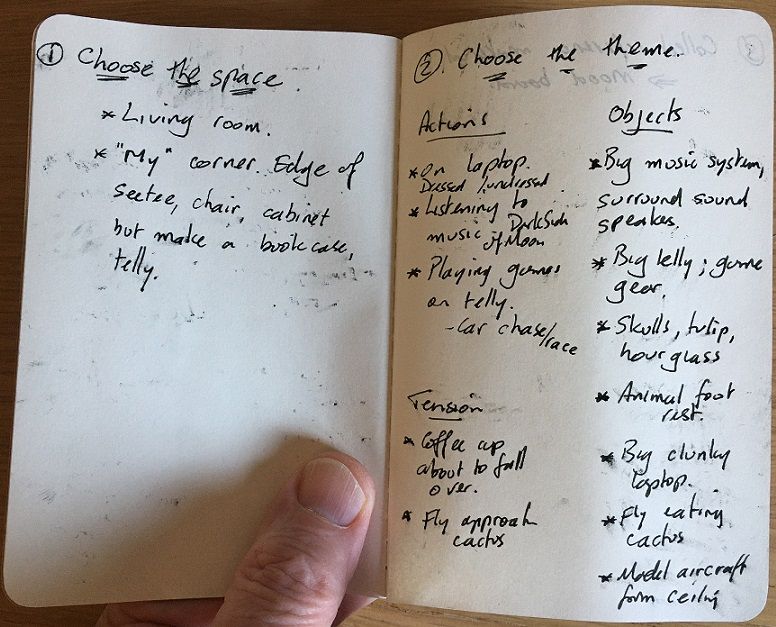 ① Choose the space.
* Living room.
* "My" corner. Edge of
settee, chair, cabinet
but make a bookcase,
telly.
②. Choose the theme.
Actions
* On laptop.
Dressed / undressed
* Listening to
music Dark Side
of Moon
* Playing games
on telly.
- Car chase/race
Tension
* Coffee cup
about to fall
over.
* Fly approach
cactus
Objects
* Big music system,
surround sound
speakers.
* Big telly; game
gear.
* Skulls, tulip,
hourglass
* Animal foot
rest.
* Big clunky
laptop.
* Fly eating
cactus
* Model aircraft
from ceiling